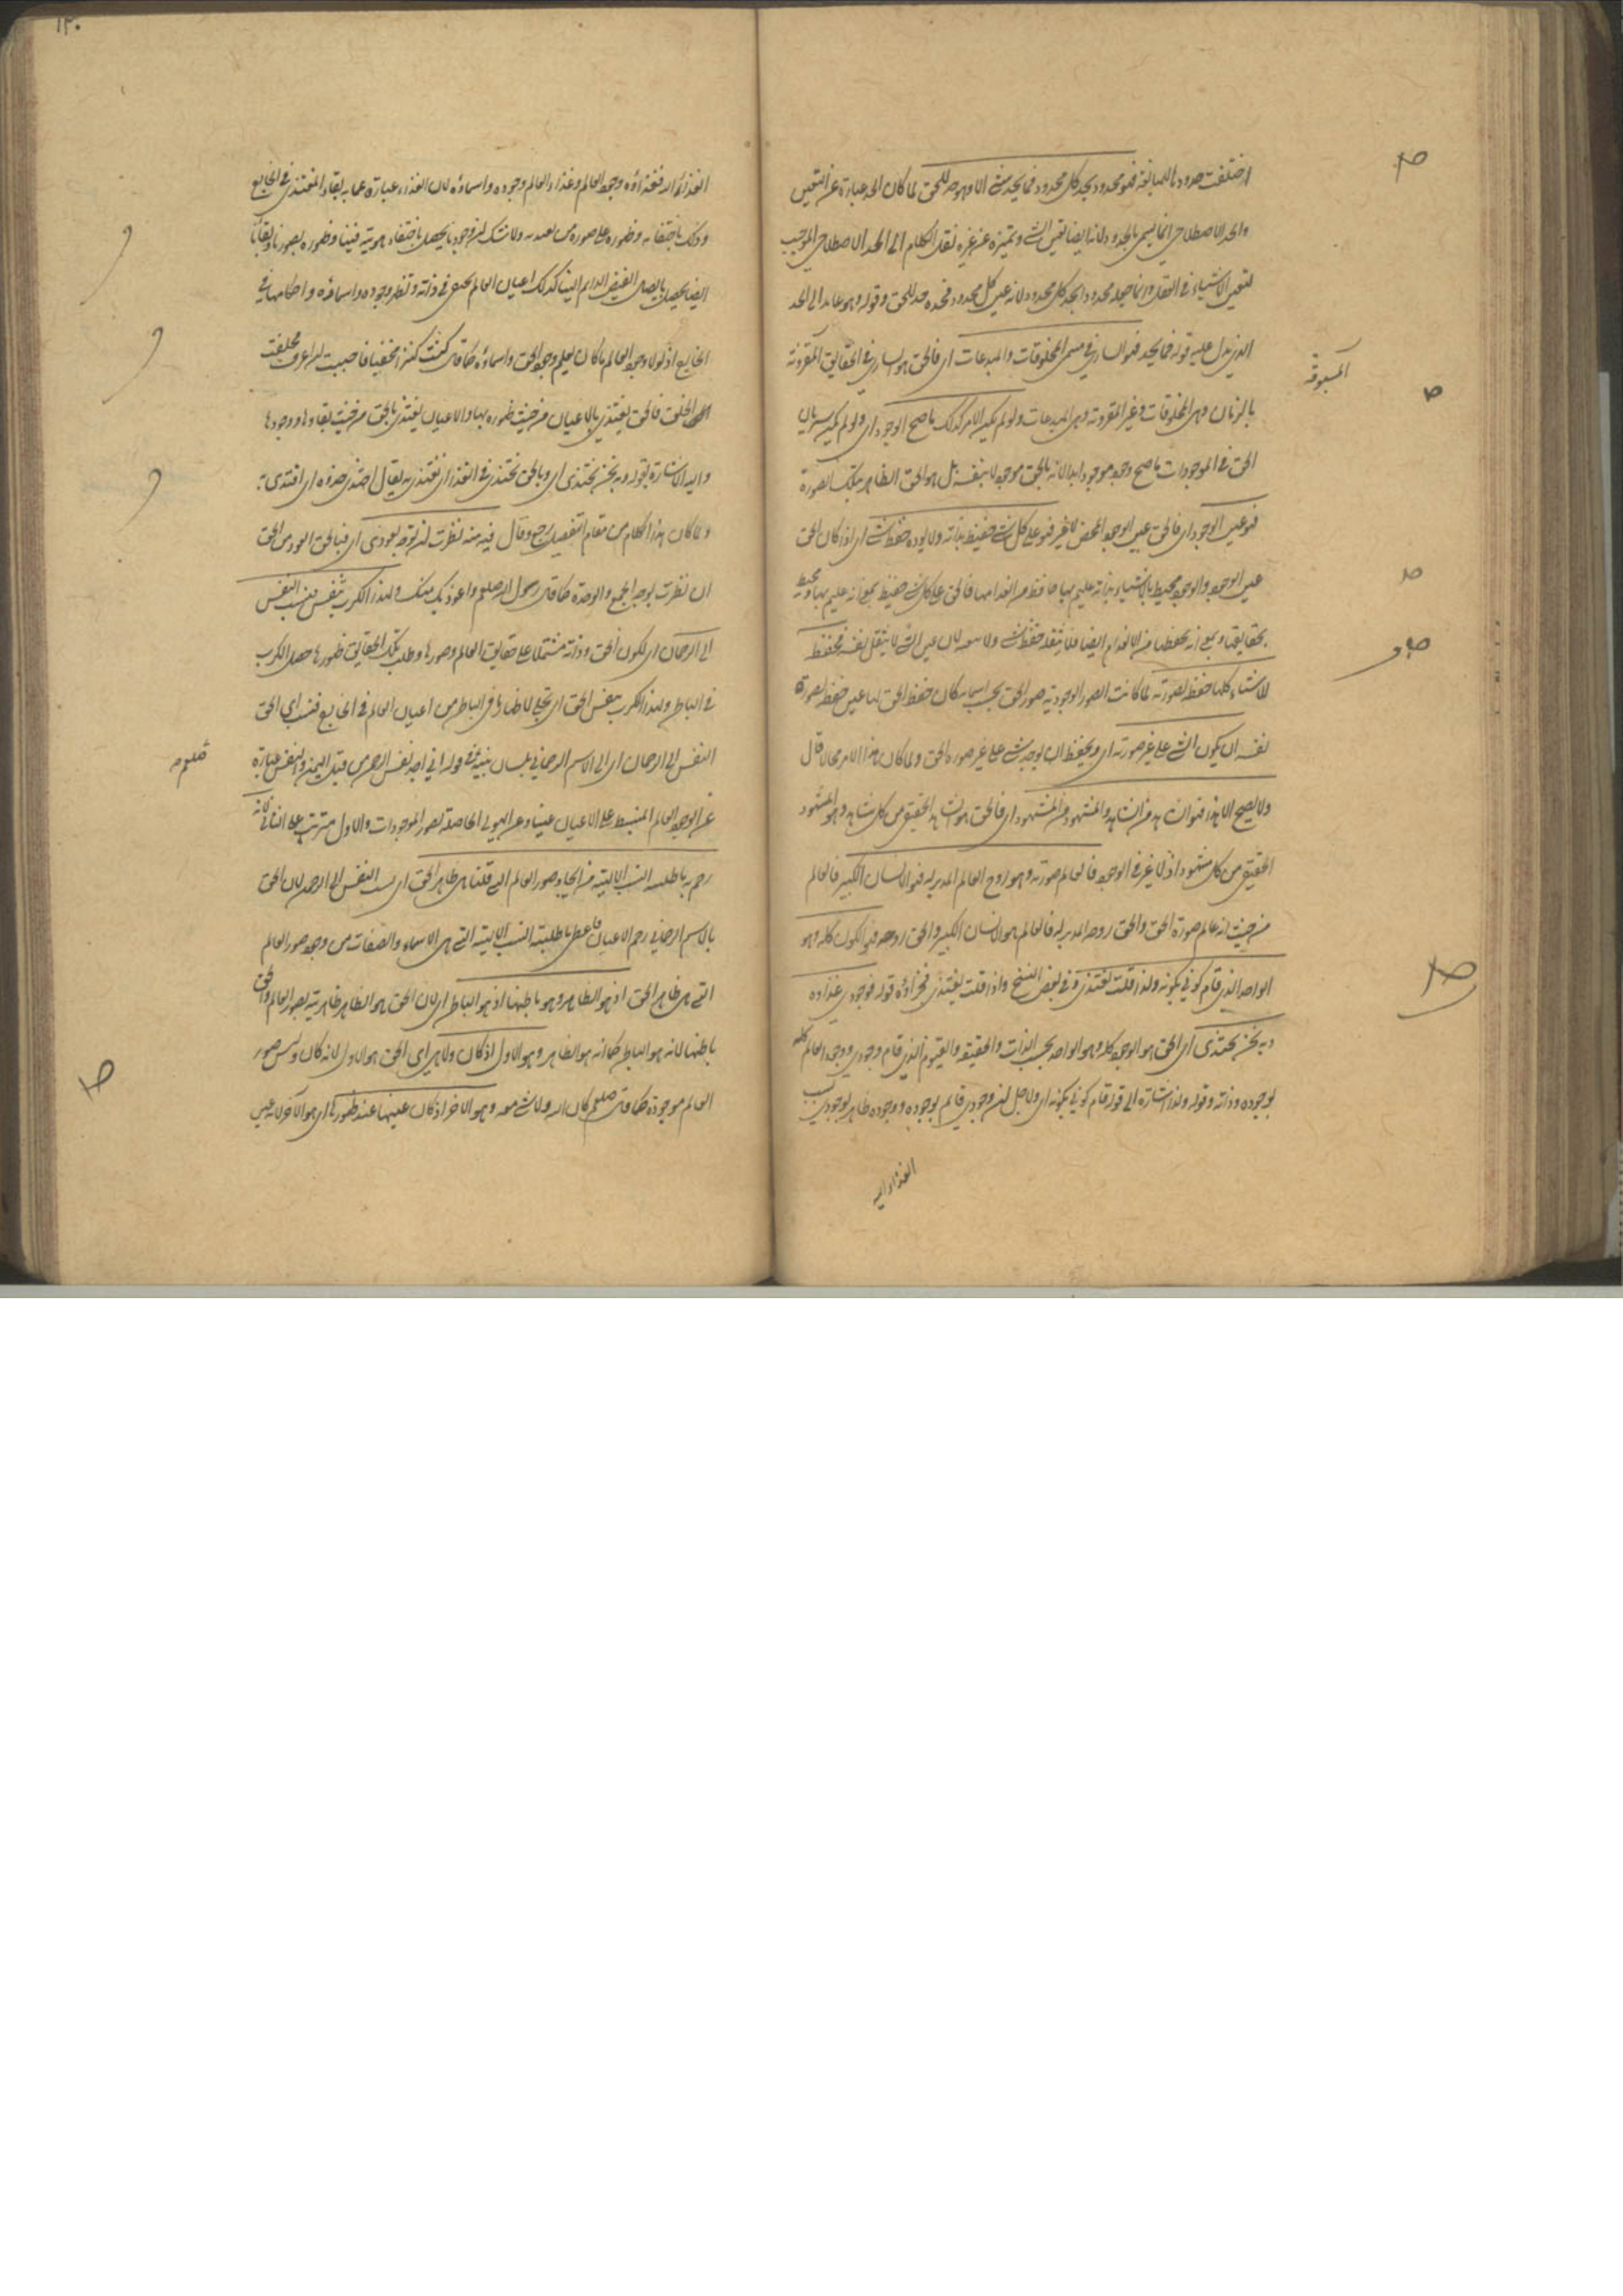 اختلفت حدوده للمبالغة فهو محدود بحد كل محدود فما يحد شئ الا وهو حد للحق لما كان الحد عبارة عن التعين
والحد الاصطلاحي انما يسمى بالحد ولانه ايضا تعين الشئ وتميزه عن غيره نقل الكلام الى الحد الاصطلاحي الموجب
لتعين الاشياء في العقل وانما جعله محدودا بحد كل محدود لانه عين كل محدود فحده حد للحق وقوله وهو عايد الى الحد
الذي يدل عليه قوله فما يحد فهو الساري في مسمى المخلوقات والمبدعات اي فالحق هو الساري في الحقايق المقرونة
المسبوقة
بالزمان وهي المخلوقات وغير المقرونة وهي المبدعات ولو لم يكن الامر كذلك ما صح الوجود اي ولو لم يكن سريان
الحق في الموجودات ما صح وجود موجود ابدا لانه بالحق موجود لا بنفسه بل هو الحق الظاهر بتلك الصورة
فهو عين الوجود اي فالحق عين الوجود المحض لا غير فهو على كل شئ حفيظ بذاته ولا يؤده حفظ شئ اي اذا كان الحق
عين الوجود والوجود محيط بالاشياء بذاته عليم بها حافظ من انعدامها فالحق على كل شئ حفيظ بمعنى انه عليم بها ومحيط
بحقايقها وبمعنى انه يحفظها من الانعدام ايضا فلا يثقله حفظ شئ ولا يتعبه لان عين الشئ لا يثقل نفسه فحفظه
للاشياء كلها حفظ لصورته لما كانت الصور الوجودية صور الحق بحسب اسمائه كان حفظ الحق لها عين حفظه لصورة
نفسه ان يكون الشئ على غير صورته اي ويحفظ ان يوجد شئ على غير صورة الحق ولما كان هذا الامر محالا قال
ولا يصح الا هذا فهو الشاهد من الشاهد والمشهود من المشهود اي فالحق هو الشاهد الحقيقي من كل شاهد وهو المشهود
الحقيقي من كل مشهود اذ لا غير في الوجود فالعالم صورته وهو روح العالم المدبر له فهو الانسان الكبير فالعالم
من حيث انه عالم صورة الحق والحق روحه المدبر له فالعالم هو الانسان الكبير والحق روحه فهو الكون كله وهو
الواحد الذي قام كوني بكونه ولذا قلت يغتذي وفي بعض النسخ واذا قلت يغتذي فجزاؤه قوله فوجودي غذاؤه
وبه نحن نحتذي اي الحق هو الوجود كله وهو الواحد بحسب الذات والحقيقة والقيوم الذي قام وجودي ووجود العالم كله
بوجوده وذاته وقوله ولذا اشارة الى قوله قام كوني بكونه اي ولاجل ان وجودي قايم بوجوده ووجوده ظاهر بوجودي نسب
الغذاء اليه
١٣٠
الغذاء اليه فغذاؤه وجود العالم وغذاء العالم وجوده واسماؤه لان الغذاء عبارة عما به بقاء المغتذي في الخارج
وذلك باختفائه وظهوره على صورة من يغتذيه ولا شك ان وجودنا يحصل باختفاء هويته فينا وظهوره بصورنا وبقاؤنا
ايضا يحصل بايصال الفيض الدايم الينا كذلك اعيان العالم يختفي في ذاته ويظهر وجوده واسماؤه واحكامها في
الخارج اذ لولا وجود العالم ما كان يعلم وجود الحق واسماؤه كما قال كنت كنزا مخفيا فاحببت ان اعرف فخلقت
الخلق فالحق يغتذي بالاعيان من حيث ظهوره بها والاعيان يغتذي بالحق من حيث بقاؤها ووجودها
واليه الاشارة بقوله وبه نحن نحتذي اي وبالحق نحتذي في الغذاء اي نغتذي به يقال احتذى حذوه اي اقتدى به
ولما كان هذا الكلام من مقام التفصيل رجع وقال فبه منه ان نظرت بوجه تعوذي اي فبالحق اعوذ من الحق
ان نظرت بوجه الجمع والوحدة كما قال رسول الله صلعم واعوذ بك منك ولهذا الكرب تنفس فنسب النفس
الى الرحمان اي لكون الحق وذاته مشتملا على حقايق العالم وصورها وطلب تلك الحقايق ظهورها حصل الكرب
في الباطن ولهذا الكرب تنفس الحق اي تجلى لاظهار ما في الباطن من اعيان العالم في الخارج فنسب اي الحق
النفس الى الرحمان اي الى الاسم الرحماني بلسان نبيه في قوله اني اجد نفس الرحمن من قبل اليمن والنفس عبارة
عن الوجود العام المنبسط على الاعيان عينا وعن الهيولى الحاملة لصور الموجودات والاول مترتب على الثاني
رحم به ما طلبته النسب الالهية من ايجاد صور العالم التي قلنا هي ظاهر الحق اي نسب النفس الى الرحمن لان الحق
بالاسم الرحماني رحم الاعيان فاعطى ما طلبته النسب الالهية التي هي الاسماء والصفات من وجود صور العالم
التي هي ظاهر الحق اذ هو الظاهر وهو باطنها اذ هو الباطن اي لان الحق هو الظاهر ظاهريته بصور العالم والحق
باطنها لانه هو الباطن كما انه هو الظاهر وهو الاول اذ كان ولا هي اي الحق هو الاول لانه كان وليس صور
العالم موجودة كما قال صلعم كان الله ولا شئ معه وهو الاخر اذ كان عينها عند ظهورها اي هو الآخر لانه عين